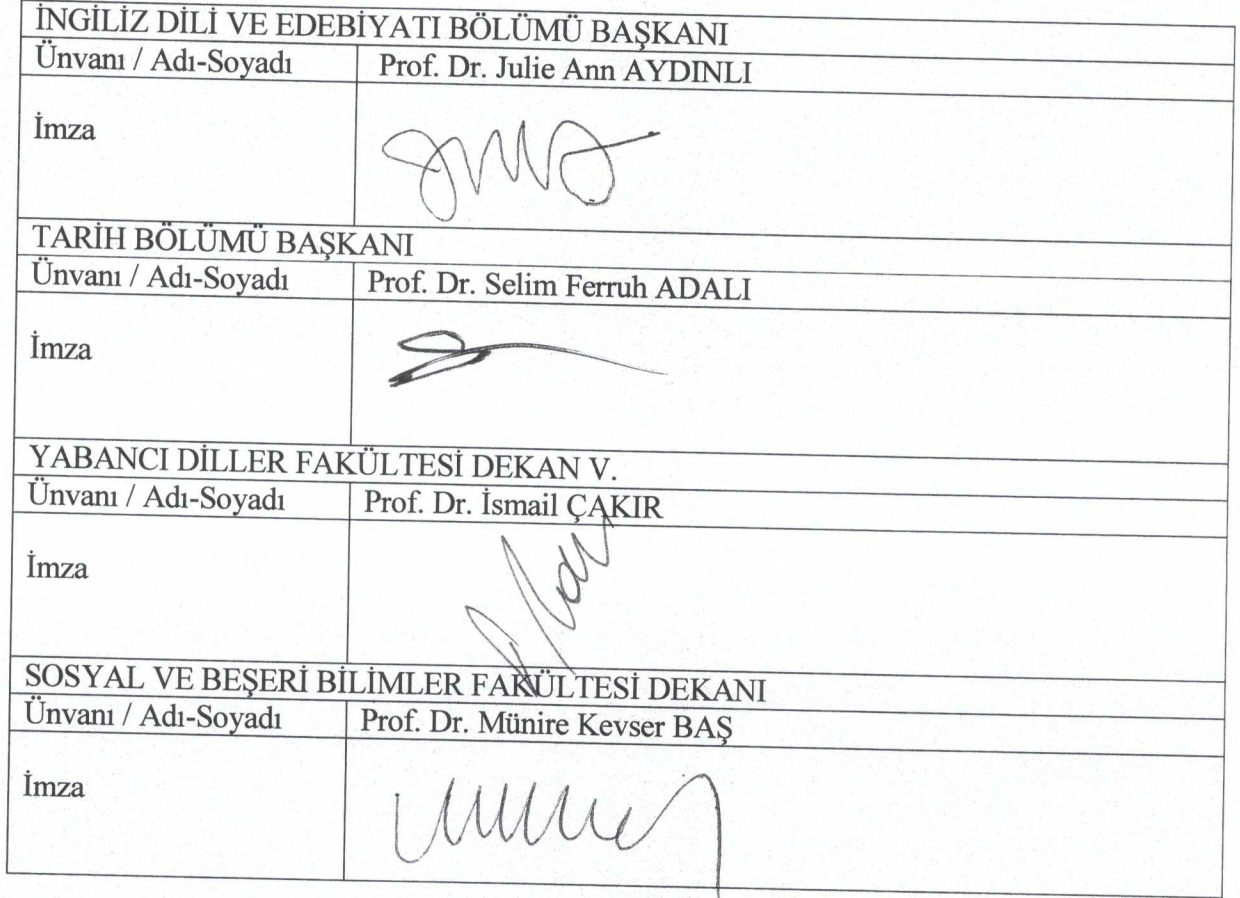 İNGİLİZ DİLİ VE EDEBİYATI BÖLÜMÜ BAŞKANI
Ünvanı / Adı-Soyadı Prof. Dr. Julie Ann AYDINLI
İmza
TARİH BÖLÜMÜ BAŞKANI
Ünvanı / Adı-Soyadı Prof. Dr. Selim Ferruh ADALI
İmza
YABANCI DİLLER FAKÜLTESİ DEKAN V.
Ünvanı / Adı-Soyadı Prof. Dr. İsmail ÇAKIR
İmza
SOSYAL VE BEŞERİ BİLİMLER FAKÜLTESİ DEKANI
Ünvanı / Adı-Soyadı Prof. Dr. Münire Kevser BAŞ
İmza